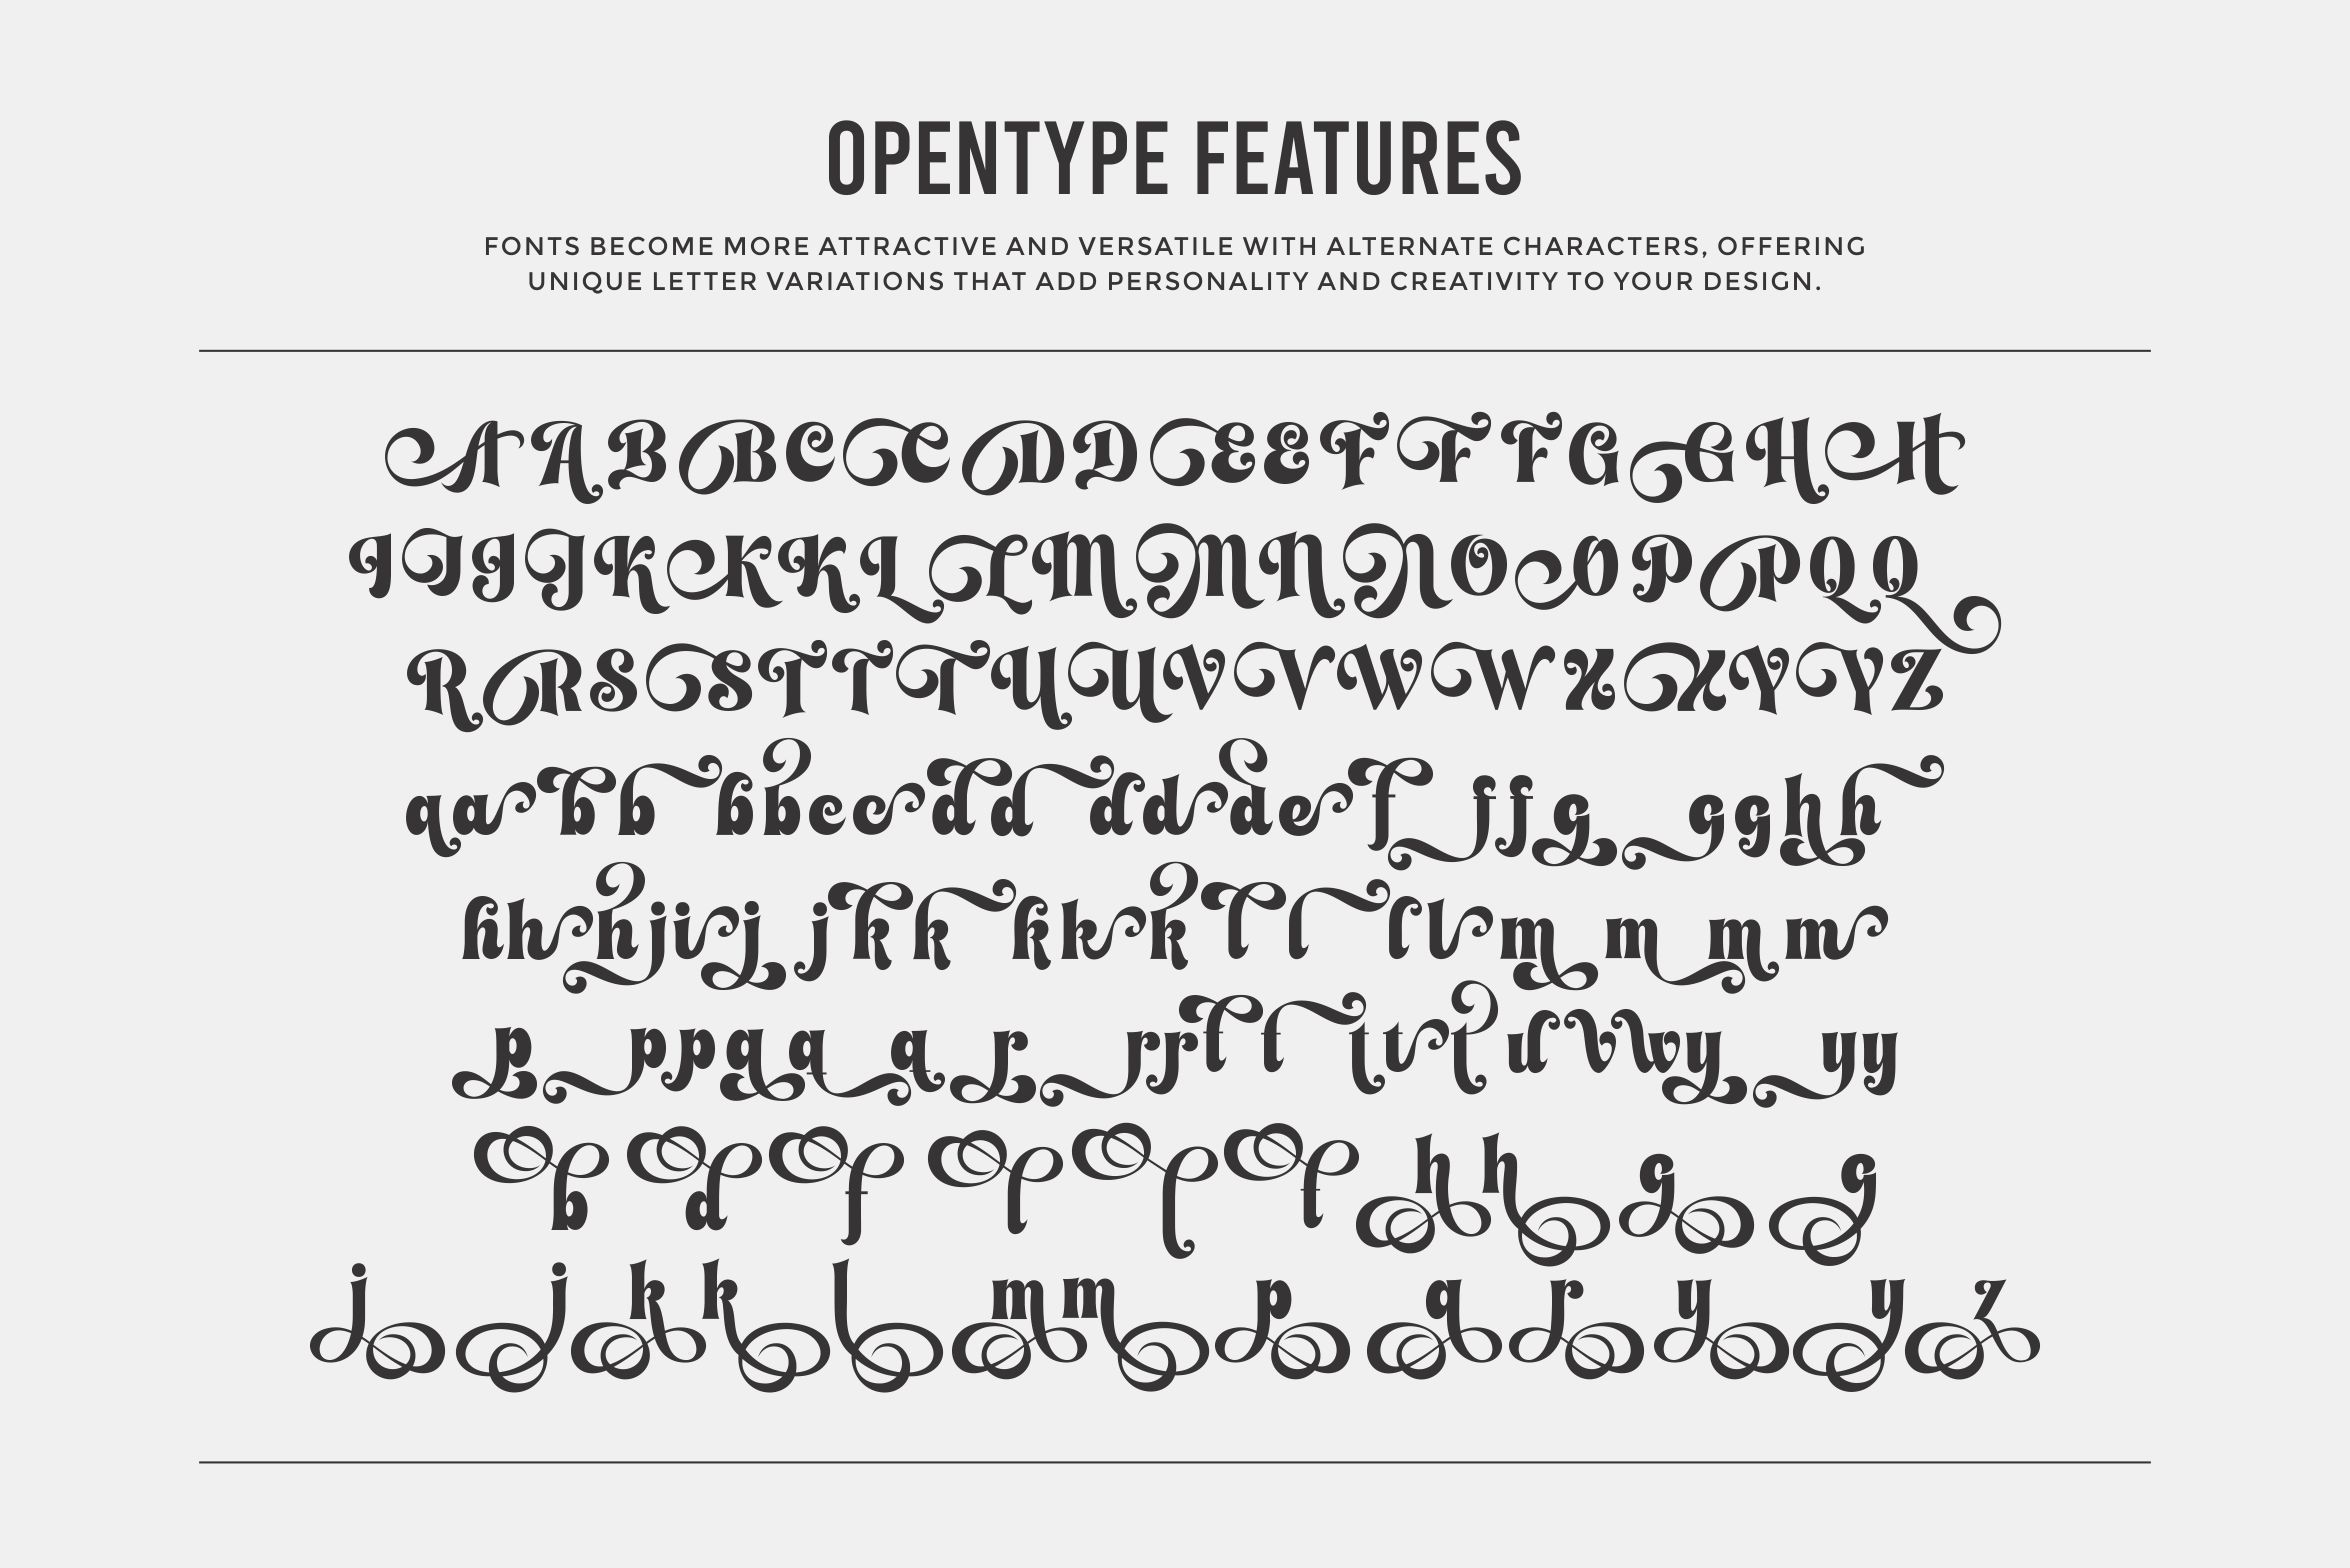 OPENTYPE FEATURES
FONTS BECOME MORE ATTRACTIVE AND VERSATILE WITH ALTERNATE CHARACTERS, OFFERING
UNIQUE LETTER VARIATIONS THAT ADD PERSONALITY AND CREATIVITY TO YOUR DESIGN.
AABBCCDDEEFFFGGHH
IIJJKKKLLMMNNOOPPQQ
RRSSTTTUUVVWWXXYYZ
aabbbbccdddddefjjggghh
hhhjijjkkkkkllllmmmm
pppqqqrrrtttttuvwyyy
bdfllthhgg
jjkklmmpqryyz